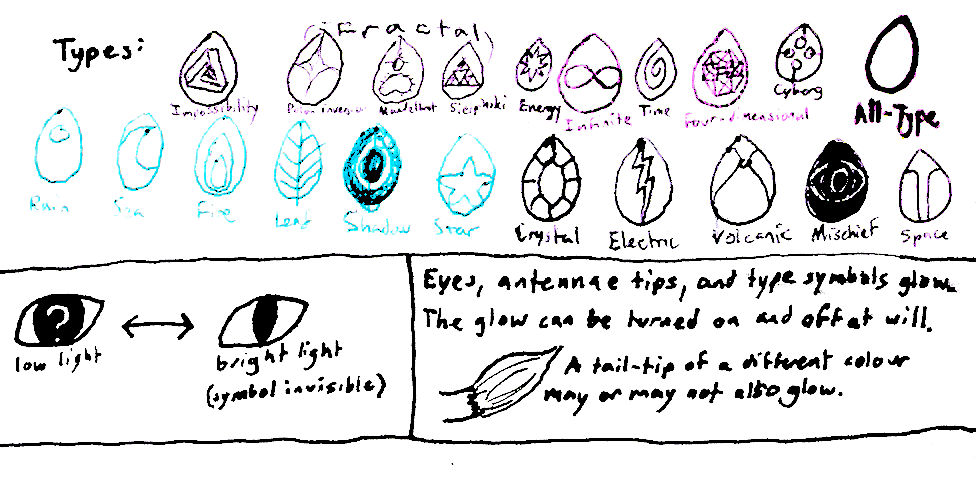 Types:
(Fractal)
Impossibility
inversion
Mandelbrot
Energy
Infinite
Time
Four-dimensional
Cyborg
All-Type
Rain
Sea
Fire
Leaf
Shadow
Star
Crystal
Electric
Volcanic
Mischief
Space
?
low light
bright light
(symbol invisible)
Eyes, antennae tips, and type symbols glow.
The glow can be turned on and off at will.
A tail-tip of a different colour
may or may not also glow.